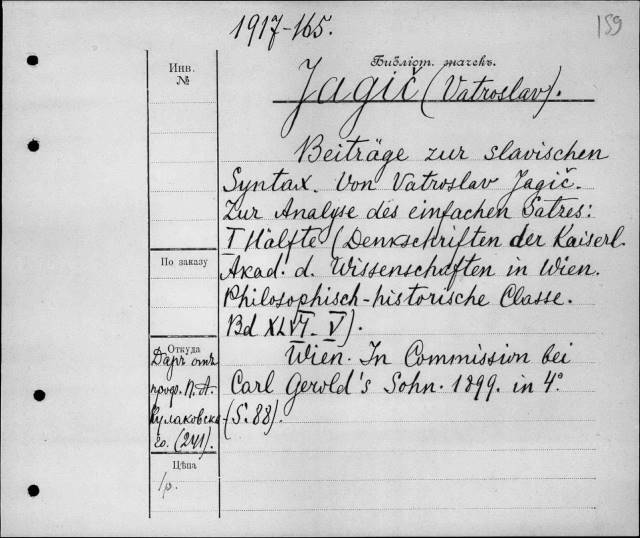 1917-165.
159
Библіот. значекъ.
Инв.
№
Jagič (Vatroslav).
Beiträge zur slavischen
Syntax. Von Vatroslav Jagič.
Zur Analyse des einfachen Satzes:
I Hälfte (Denkschriften der Kaiserl.
По заказу
Akad. d. Wissenschaften in Wien.
Philosophisch-historische Classe.
Bd XLVI - V).
Откуда
Wien. In Commission bei
Даръ отъ
Carl Gerold's Sohn. 1899. in 4°
проф. П. А.
(S. 88).
Кулаковска-
го. (241).
Цѣна
1р.